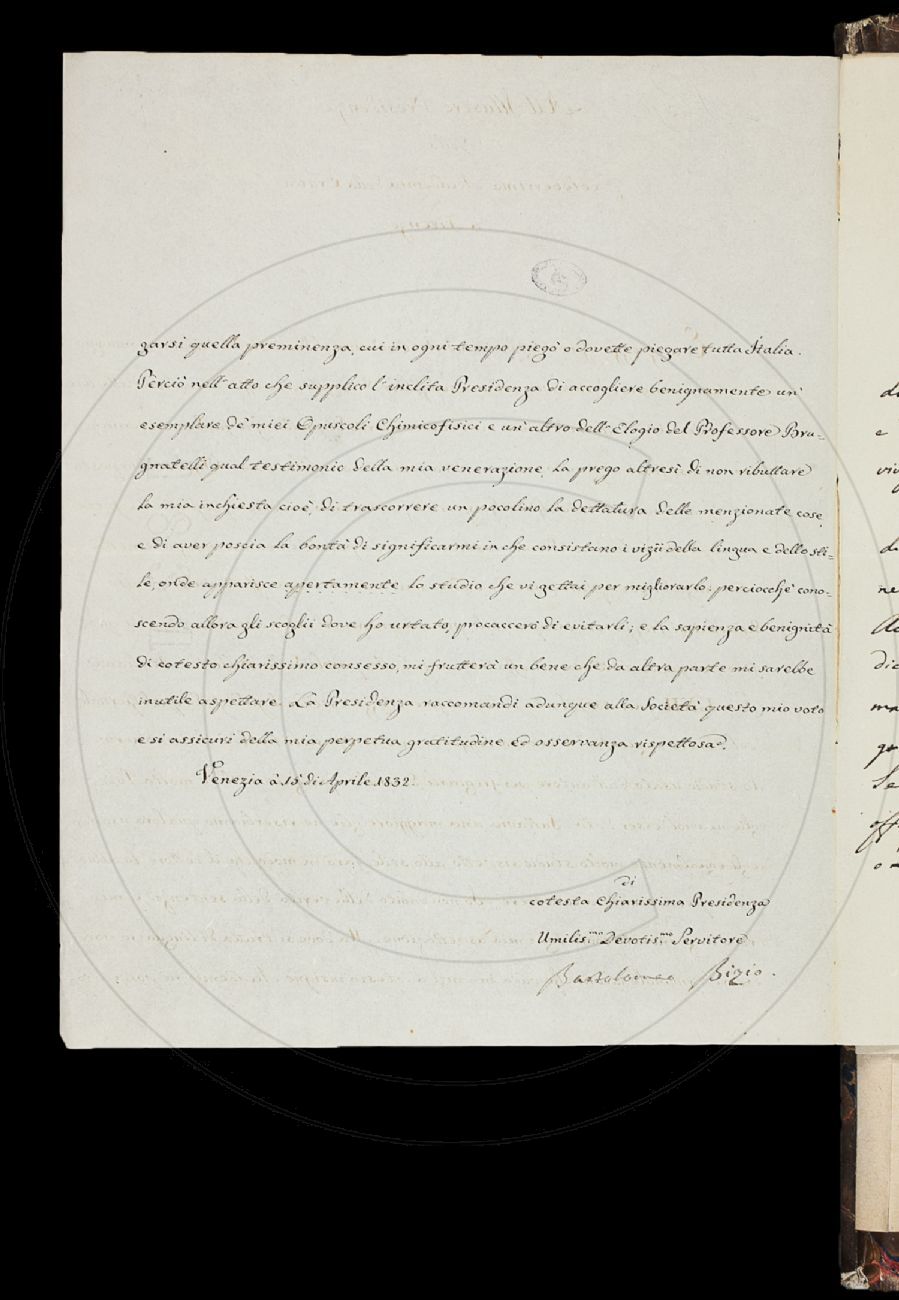 zarsi quella preminenza, cui in ogni tempo piegò o dovette piegare tutta Italia.
Perciò nell'atto che supplico l'inclita Presidenza di accogliere benignamente un'
esemplare de' miei Opuscoli Chimicofisici e un'altro dell'Elogio del Professore Bru=
gnatelli qual testimonio della mia venerazione, La prego altresì di non ributtare
la mia inchiesta cioè, di trascorrere un pocolino la dettatura delle menzionate cose,
e di aver poscia la bontà di significarmi in che consistano i vizii della lingua e dello sti=
le, onde apparisce apertamente lo studio che vi gettai per migliorarlo: perciocchè cono=
scendo allora gli scoglii dove ho urtato, procaccerò di evitarli; e la sapienza e benignità
di cotesto chiarissimo consesso, mi frutterà un bene che da altra parte mi sarebbe
inutile aspettare. La Presidenza raccomandi adunque alla Società questo mio voto
e si assicuri della mia perpetua gratitudine ed osservanza rispettosa.
Venezia à 15 di Aprile 1832.
di
cotesta Chiarissima Presidenza
Umilis.mo Devotis.mo Servitore
Bartolomeo Bizio.